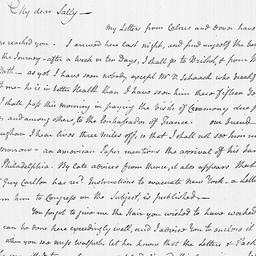 My dear Sally —
My Letters from Calais and Dover have
reached you. I arrived here last night, and find myself the b
the Journey — after a week or ten Days, I shall go to Bristol, & from
Bath — as yet I have seen nobody except Mr V. Schaack who
me — he is in better Health than I have seen him these fifteen
I shall pass this morning in paying the Visits of Ceremony due
and among others, to the Embassador of France. our Friend
ughan I hear lives three miles off, so that I shall not see him un
omorrow — an american Paper mentions the arrival of his
Philadelphia. By late advices from thence, it also appears that
Guy Carlton has recd. Instructions to evacuate New York. a Lette
him to Congress on the Subject, is published —
You forgot to give me the Hair you wished to have worked
can be done here exceedingly well, and I advise You to enclose it
when you see Miss Walpole, let her know that the Letters & Pack